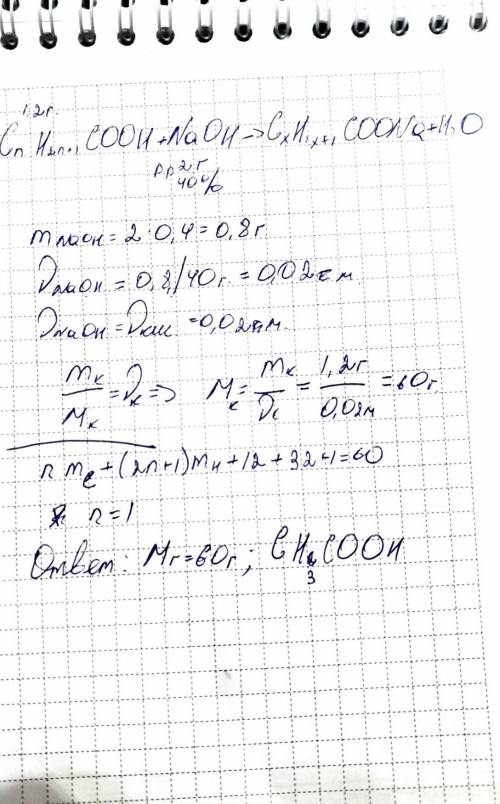 1,2г.
CnH2n+1COOH+NaOH→CxH2x+1COONa+H2O
р.р 2г
40%
mNaOH = 2·0,4 = 0,8г
νNaOH = 0,8/40г. = 0,02 м
νNaOH = νкис = 0,02 м.
mк/Mк = νк => Mк = mк/νк = 1,2г/0,02м = 60г.
n mc+(2n+1)mн+12+32+1=60
n=1
Ответ: Mr=60г; CH3COOH